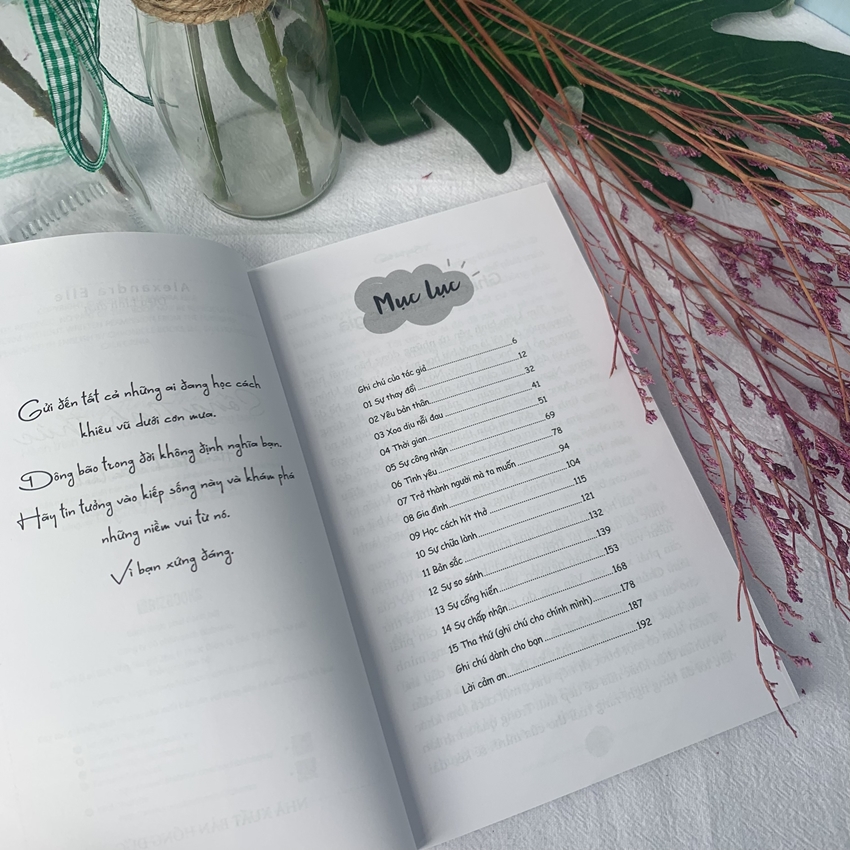 Gửi đến tất cả những ai đang học cách
khiêu vũ dưới cơn mưa.
Dông bão trong đời không định nghĩa bạn.
Hãy tin tưởng vào kiếp sống này và khám phá
những niềm vui từ nó.
Vì bạn xứng đáng.
Mục lục
Ghi chú của tác giả 6
01 Sự thay đổi 12
02 Yêu bản thân 32
03 Xoa dịu nỗi đau 41
04 Thời gian 51
05 Sự công nhận 69
06 Tình yêu 78
07 Trở thành người mà ta muốn 94
08 Gia đình 104
09 Học cách hít thở 115
10 Sự chữa lành 121
11 Bản sắc 132
12 Sự so sánh 139
13 Sự cống hiến 153
14 Sự chấp nhận 168
15 Tha thứ (ghi chú cho chính mình) 178
Ghi chú dành cho bạn 187
Lời cảm ơn 192